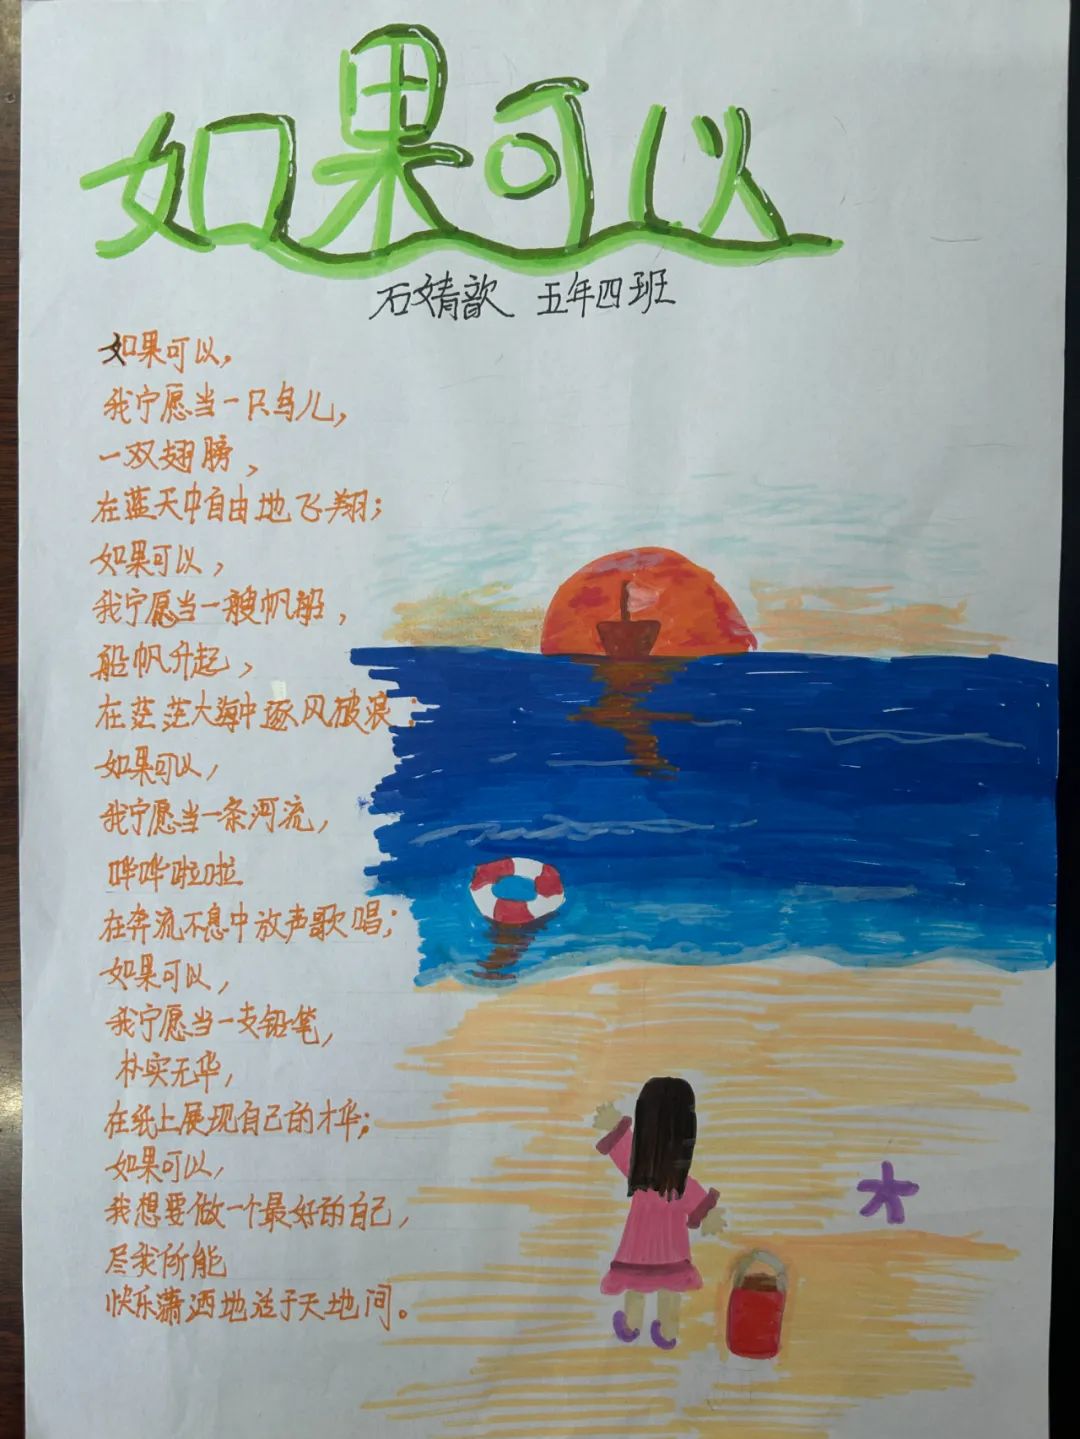 如果可以
石婧歆 五年四班
如果可以，
我宁愿当一只鸟儿，
一双翅膀，
在蓝天中自由地飞翔；
如果可以，
我宁愿当一艘帆船，
船帆升起，
在茫茫大海中逐风破浪；
如果可以，
我宁愿当一条河流，
哗哗啦啦
在奔流不息中放声歌唱；
如果可以，
我宁愿当一支铅笔，
朴实无华，
在纸上展现自己的才华；
如果可以，
我想要做一个最好的自己，
尽我所能
快乐潇洒地活于天地间。